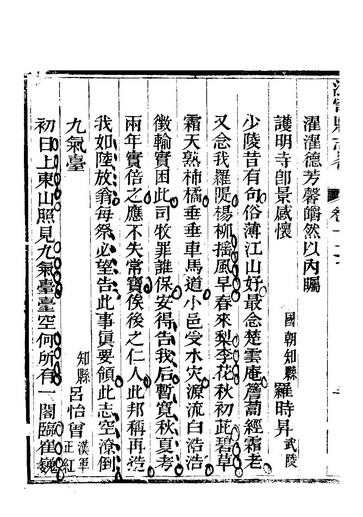 濯濯德芳馨皜然以內矚
護明寺卽景感懷
國朝知縣羅時昇武陵
少陵昔有句俗薄江山好最念楚雲庵簷蔔經霜老
又念我羅隄楊柳搖風早春來梨李花秋初此碧草
霜天熟柿橘垂垂車馬道小邑受水灾源流白浩浩
徵輸實困此司牧罪誰保安得告我后暫寬秋夏考
兩年實倍之應不失常寶俟後之仁人此邦稱再造
我如陸放翁每祭必望告此事眞要領此志空潦倒
九氣臺
知縣呂怡曾漢軍正紅
初日上東山照見九氣臺臺空何所有一閣臨崔巍